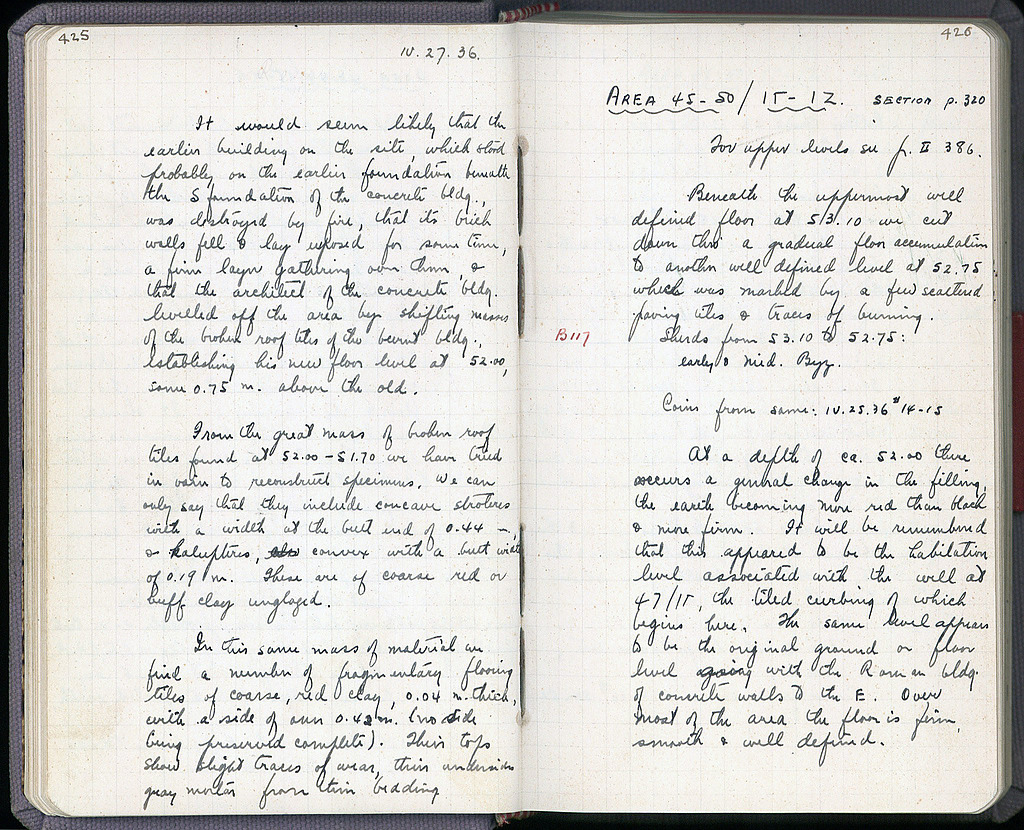 425
IV.27.36.
It would seem likely that the
earlier building on the site, which stood
probably on the earlier foundation beneath
the S foundation of the concrete bldg.,
was destroyed by fire, that its brick
walls fell & lay exposed for some time,
a firm layer gathering over them, &
that the architect of the concrete bldg.
levelled off the area by shifting masses
of the broken roof tiles of the burnt bldg.,
establishing his new floor level at 52.00,
some 0.75 m. above the old.
From the great mass of broken roof
tiles found at 52.00 - 51.70 we have tried
in vain to reconstruct specimens. We can
only say that they include concave stroteres
with a width at the butt end of 0.44 m,
& kalupteres, convex with a butt width
of 0.19 m. These are of coarse red or
buff clay unglazed.
In this same mass of material we
find a number of fragmentary flooring
tiles of coarse, red clay, 0.04 m. thick,
with a side of over 0.42 m. (no side
being preserved complete). Their tops
show slight traces of wear, their undersides
gray mortar from their bedding
426
AREA 45-50/ ΙΕ-ΙΖ. SECTION p. 320
For upper levels see p. II 386.
Beneath the uppermost well
defined floor at 53.10 we cut
down thro' a gradual floor accumulation
to another well defined level at 52.75
which was marked by a few scattered
paving tiles & traces of burning.
B117
Sherds from 53.10 to 52.75:
early & med. Byz.
Coins from same: IV.25.36 #14-15
At a depth of ca. 52.00 there
occurs a general change in the filling,
the earth becoming more red than black
& more firm. It will be remembered
that this appeared to be the habitation
level associated with the well at
47/ΙΕ, the tiled curbing of which
begins here. The same level appears
to be the original ground or floor
level going with the Roman bldg.
of concrete walls to the E. Over
most of the area the floor is firm,
smooth & well defined.